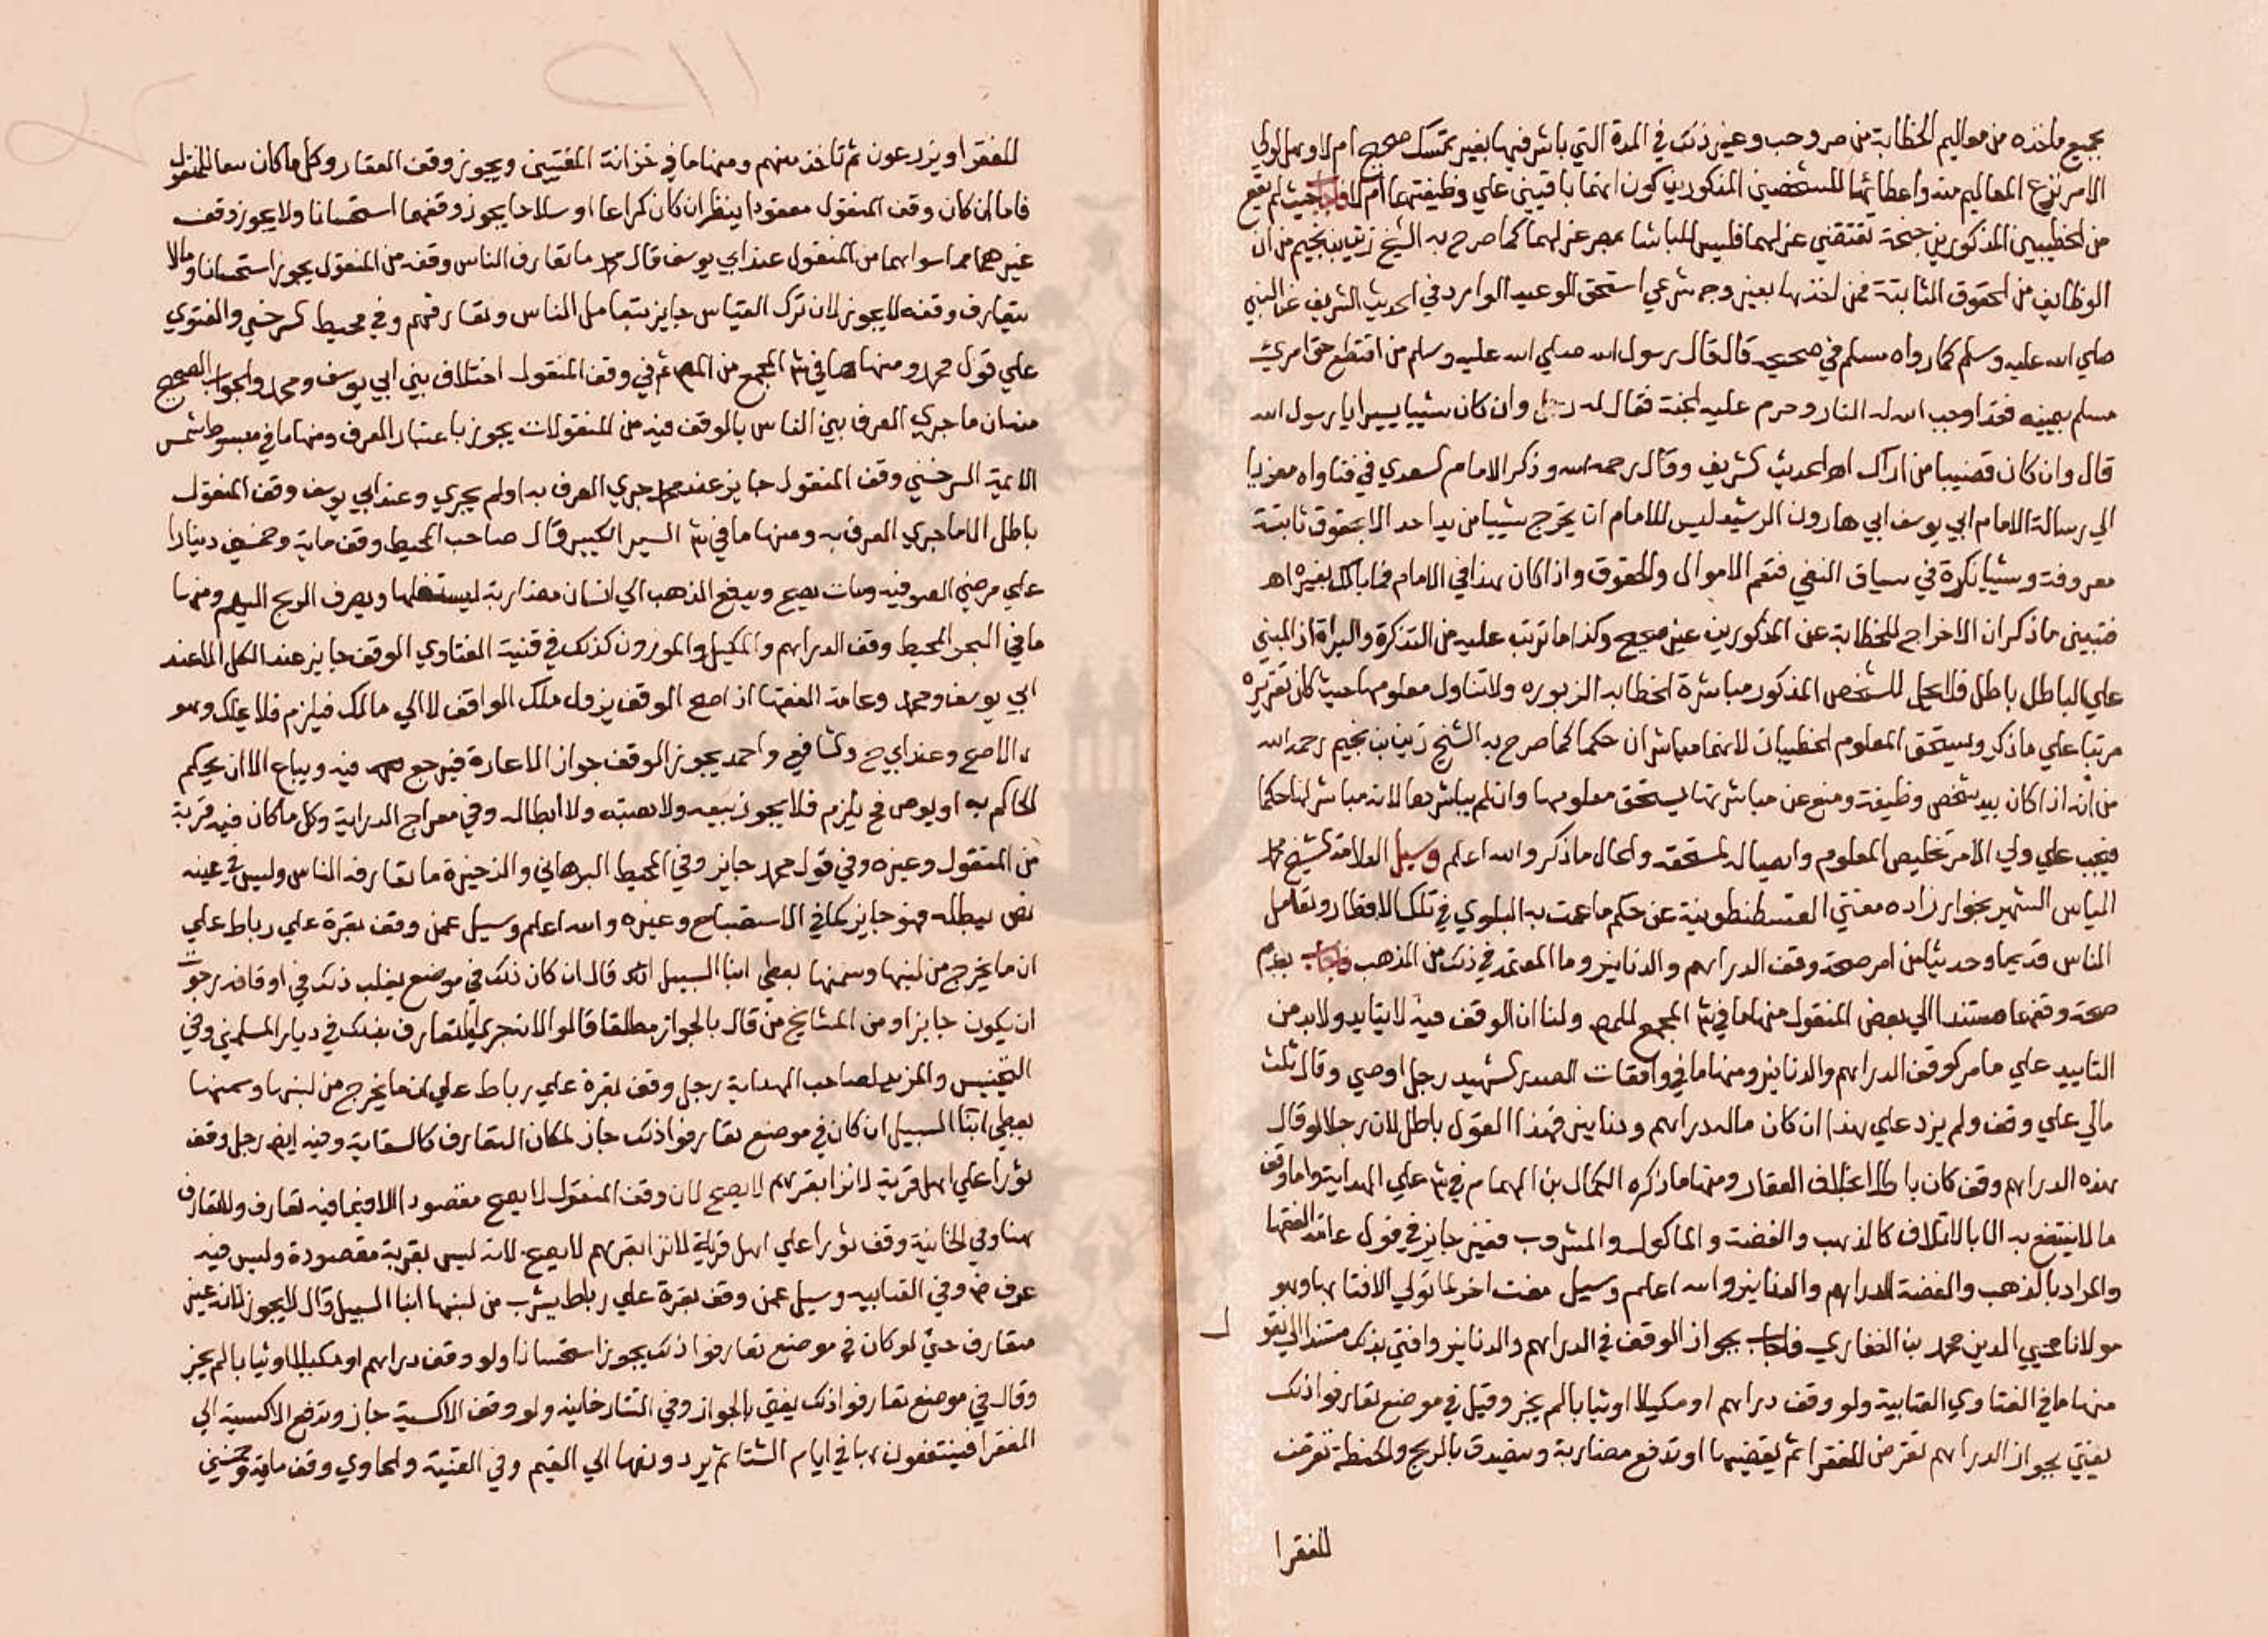 بجميع ماخذه من معاليم الخطابة من صر وحب وغير ذلك في المدة التي باشر فيها بغير تمسك صحيح ام لا وهل لولي
الامر نزع المعاليم منه واعطائها للشخصين المذكورين كون انهما باقيين علي وظيفتهما ام لا فاجاب حيث لم يقع
من الخطيبين المذكورين جنحة تقتضي عزلهما فليس للباشا بمصر عزلهما كما صرح به الشيخ زين بن نجيم من ان
الوظايف من الحقوق الثابتة فمن اخذها بغير وجه شرعي استحق الوعيد الوارد في الحديث الشريف عن النبي
صلي الله عليه وسلم كما رواه مسلم في صحيحه قال قال رسول الله صلي الله عليه وسلم من اقتطع حق امري
مسلم بيمينه فقد اوجب الله له النار وحرم عليه الجنة فقال له رجل وان كان شييا يسيرا يا رسول الله
قال وان كان قضيبا من اراك اهـ الحديث الشريف وقال رحمه الله وذكر الامام السعدي في فتاواه معزيا
الي رسالة الامام ابي يوسف ابي هارون الرشيد ليس للامام ان يخرج شييا من يد احد الا بحقوق ثابتة
معروفة وشييا نكرة في سياق النفي فتعم الاموال والحقوق واذا كان هذا في الامام فما بالك بغيره اهـ
فتبين ما ذكر ان الاخراج للخطابة عن المذكورين غير صحيح وكذا ما ترتب عليه من التذكرة والبراة اذ المبني
علي الباطل باطل فلا يحل للشخص المذكور مباشرة الخطابة المزبوره ولا تناول معلومها حيث كان تقريره
مرتبا علي ما ذكر ويستحق المعلوم الخطيبان لانهما مباشران حكما كما صرح به الشيخ زين بن نجيم رحمه الله
من انه اذا كان بيد شخص وظيفة ومنع عن مباشرتها يستحق معلومها وان لم يباشرها لانه مباشر لها حكما
فيجب علي ولي الامر تخليص المعلوم وايصاله لمستحقه والحال ما ذكر والله اعلم وسيل العلامة الشيخ محمد
الياس الشهير بجوار زاده مفتي القسطنطونية عن حكم ما عمت به البلوي في تلك الاقطار وتعامل
الناس قديما وحديثا من امر صحة وقف الدراهم والدنانير وما المعتمد في ذلك من المذهب فاجاب بعدم
صحة وقفها مستندا الي بعض المنقول منها ما في شر المجمع للمص ولنا ان الوقف فيه لا يتابد ولا بد من
التابيد علي ما مر كوقف الدراهم والدنانير ومنها ما في واقعات الصدر الشهيد رجل اوصي وقال ثلث
مالي علي وقف ولم يزد علي هذا ان كان ماله دراهم ودنانير فهذا القول باطل لان رجلا لو قال
هذه الدراهم وقف كان باطلا بخلاف العقار ومنها ما ذكره الكمال بن الهمام في شر علي الهداية واما وقف
ما لا ينتفع به الا بالاتلاف كالذهب والفضة والماكول والمشروب فغير جايز في قول عامة الفقها
والمراد بالذهب والفضة الدراهم والدنانير والله اعلم وسيل مفت اخر لما تولي الافتا بها وهو
مولانا محيي الدين محمد بن الفناري فاجاب بجواز الوقف في الدراهم والدنانير وافتي بذلك مستندا الي نقو
ل
منها ما في الفتاوي العتابية ولو وقف دراهم او مكيلا او ثيابا لم يجز وقيل في موضع تعارفوا ذلك
يفتي بجواز الدراهم تقرض للفقرا ثم يقضيها او تدفع مضاربة ويتصدق بالربح والحنطة تقرض
للفقرا
للفقرا ويزرعون ثم تاخذ منهم ومنها ما في خزانة المفتيين ويجوز وقف العقار وكل ما كان تبعا للمنقول
فاما ان كان وقف المنقول مقصودا ينظر ان كان كراعا او سلاحا يجوز وقفهما استحسانا ولا يجوز وقف
غيرهما مما سواهما من المنقول عند ابي يوسف قال محمد ما تعارف الناس وقفه من المنقول يجوز استحسانا وما لا
يتعارف وقفه لا يجوز لان ترك القياس جايز بتعامل الناس وتعارفهم وفي محيط السرخسي والفتوي
علي قول محمد ومنها ما في شر المجمع من المص ثم في وقف المنقول اختلاف بين ابي يوسف ومحمد والجواب الصحيح
منه ان ما جري العرف بين الناس بالوقف فيه من المنقولات يجوز باعتبار العرف ومنها ما في مبسوط شمس
الايمة السرخسي وقف المنقول جايز عند محمد جري العرف به او لم يجري وعند ابي يوسف وقف المنقول
باطل الا ما جري العرف به ومنها ما في شر السير الكبير قال صاحب المحيط وقف ماية وخمسين دينارا
علي مرضي الصوفية ومات يصح ويدفع الذهب الي انسان مضاربة ليستغلها ويصرف الربح اليهم ومنها
ما في البحر المحيط وقف الدراهم والمكيل والموزون كذلك في قنية الفتاوي الوقف جايز عند الكل الا عند
ابي يوسف ومحمد وعامة الفقها اذ اصح الوقف يزول ملك الواقف لا الي مالك فيلزم فلا يملك وهو
الاصح وعند ابي ح والشافعي واحمد يجوز الوقف جواز الاعارة فيرجع فيه ويباع الا ان يحكم
الحاكم به او يوص فح يلزم فلا يجوز بيعه ولا هبته ولا ابطاله وفي معراج الدراية وكل ما كان فيه قربة
من المنقول وغيره وفي قول محمد جايز وفي المحيط البرهاني والذخيرة ما تعارفه الناس وليس في عينه
نص يبطله فهو جايز كما في الاستصباح وغيره والله اعلم وسيل عمن وقف بقرة علي رباط علي
ان ما يخرج من لبنها وسمنها يعطي ابنا السبيل قال ان كان ذلك في موضع يغلب ذلك في اوقافه رجوت
ان يكون جايزا ومن المشايخ من قال بالجواز مطلقا قالوا لانه جري التعارف بذلك في ديار المسلمين وفي
التجنيس والمزيد لصاحب الهداية رجل وقف بقرة علي رباط علي ان ما يخرج من لبنها وسمنها
يعطي ابنا السبيل ان كان في موضع تعارفوا ذلك جاز لمكان التعارف كالسقاية وفيه ايض رجل وقف
ثورا علي اهل قرية لانزا بقرهم لا يصح لان وقف المنقول لا يصح مقصودا الا فيما فيه تعارف ولا تعارف
هنا وفي الخانية وقف ثورا علي اهل قرية لانزا بقرهم لا يصح لانه ليس بقربة مقصودة وليس فيه
عرف وفي العتابيه وسيل عمن وقف بقرة علي رباط يشرب من لبنها ابنا السبيل قال لا يجوز لانه غير
متعارف حتي لو كان في موضع تعارفوا ذلك يجوز استحسانا ولو وقف دراهم او مكيلا او ثيابا لم يجز
وقال في موضع تعارفوا ذلك يفتي بالجواز وفي التتارخانيه ولو وقف الاكسية جاز وتدفع الاكسية الي
الفقرا فينتفعون بها في ايام الشتا ثم يردونها الي القيم وفي القنية والحاوي وقف ماية وخمسين